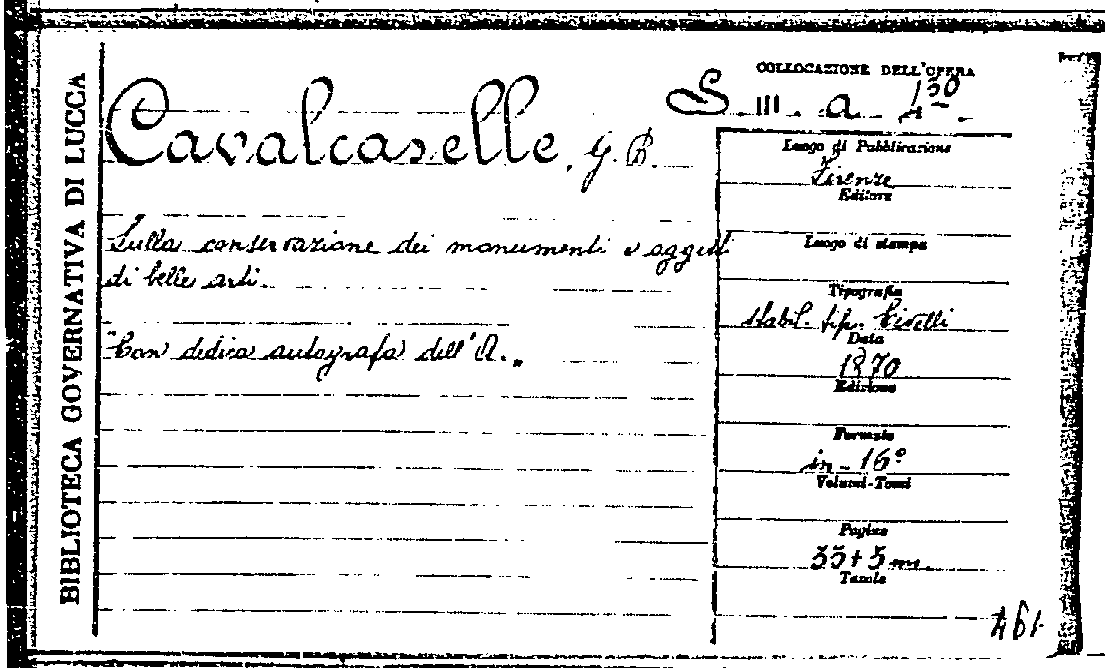 BIBLIOTECA GOVERNATIVA DI LUCCA
COLLOCAZIONE DELL'OPERA
S. III. a. 130
Cavalcaselle, G. B.
Sulla conservazione dei monumenti e oggetti
di belle arti.
"Con dedica autografa dell'A."
Luogo di Pubblicazione
Firenze
Editore
Luogo di stampa
Tipografia
Stabil. tip. Civelli
Data
1870
Edizione
Formato
in-16°
Volumi-Tomi
Pagine
35+5
Tavole